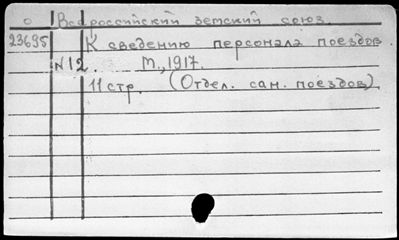 о Всероссийский земский союз.
23695 К сведению персонала поездов.
N12. М., 1917.
11 стр. (Отдел. сан. поездов)